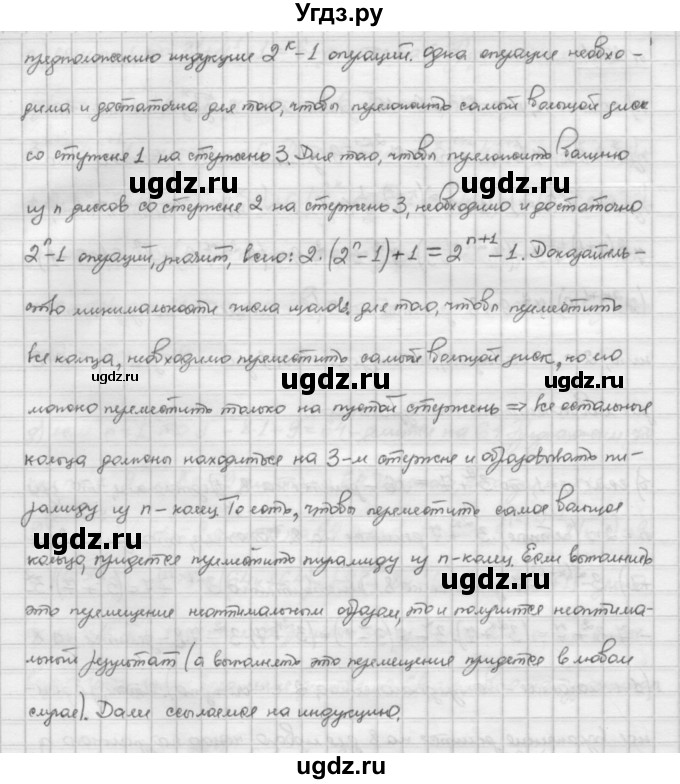 Угдз.ру
предположению индукции 2^k-1 операций. Одна операция необхо-
дима и достаточна для того, чтобы переложить самый большой диск
со стержня 1 на стержень 3. Для того, чтобы переложить башню
ugdz.ru ugdz.ru
из n дисков со стержня 2 на стержень 3, необходимо и достаточно
2^n-1 операций, значит, всего: 2·(2^n-1)+1=2^(n+1)-1. Доказатель-
ство минимальности числа шагов: для того, чтобы переместить
все кольца, необходимо переместить самый большой диск, но его
ugdz.ru ugdz.ru ugdz.ru
можно переместить только на пустой стержень ⇒ все остальные
кольца должны находиться на 3-м стержне и образовывать пи-
рамиду из n-колец. То есть, чтобы переместить самое большое
ugdz.ru
кольцо, придется переместить пирамиду из n-колец. Если выполнить
ugdz.ru
это перемещение неоптимальным образом, то и получится неоптима-
льный результат (а выполнять это перемещение придется в любом
случае). Далее ссылаемся на индукцию.
ugdz.ru ugdz.ru